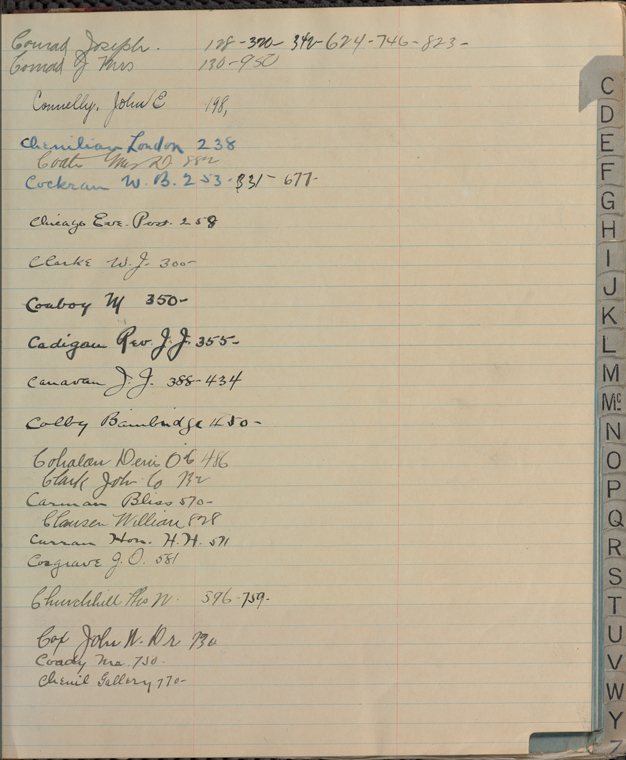 Conrad Joseph. 128-320-342-624-746-823-
Conrad J Mrs 130-950
Connelly, John E 198,
Chenilian London 238
Coates Mrs D 882
Cockran W. B. 253-331-677-
Chicago Eve. Post. 258
Clarke W. J. 300-
Conboy M 350-
Cadigan Rev. J. J. 355-
Canavan J. J. 388-434
Colby Bainbridge 450-
Cohalan 486
Clark John Co
Carman Bliss 570-
Clausen William 828
Curran Hon. H. H. 571
Cosgrave J. O. 581
Churchill W. 596-759-
Cox John H. Dr
Coady Mrs. 750-
Chenil Gallery 770-
C
D
E
F
G
H
I
J
K
L
M
Mc
N
O
P
Q
R
S
T
U
V
W
Y
Z